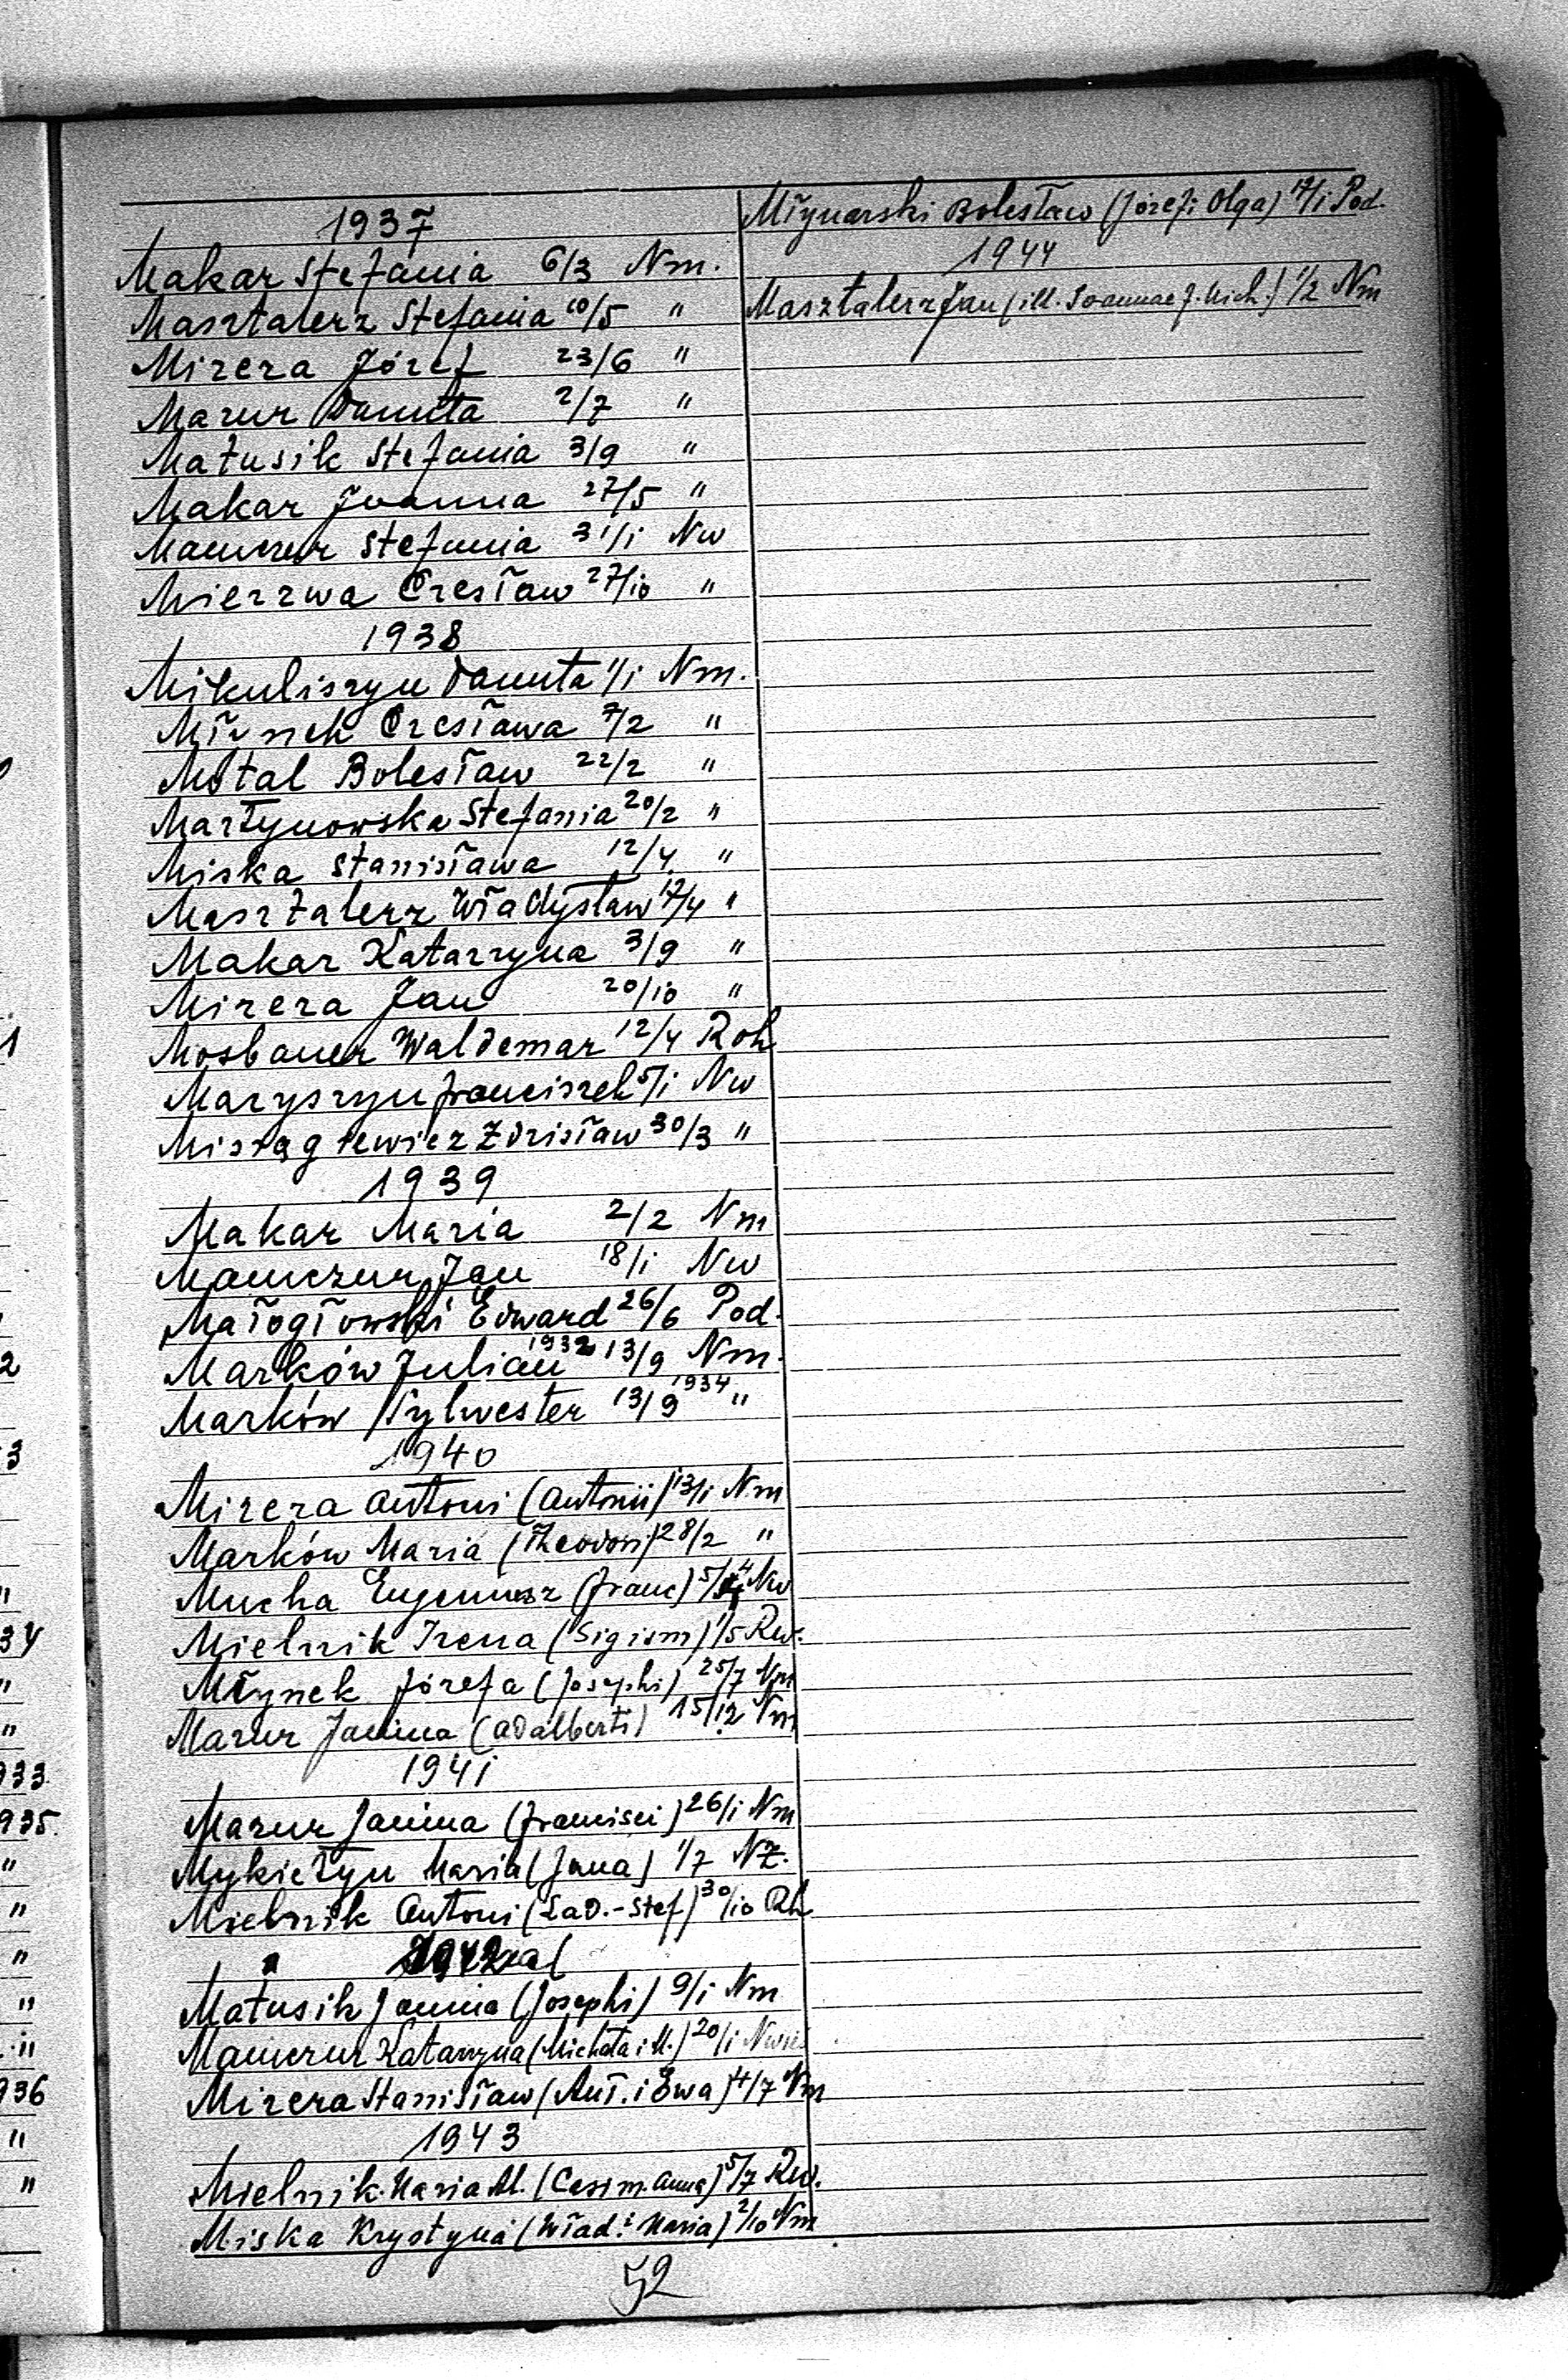 1937
Makar Stefania 6/3 Nm.
Masztalerz Stefania 10/5 "
Mizera Józef 23/6 "
Mazur Danuta 2/7 "
Matusik Stefania 3/9 "
Makar Joanna 27/5 "
Mamczur Stefania 31/1 Nw
Mierzwa Czesław 27/10 "
1938
Mikuliszyn Danuta 1/1 Nm.
Młynek Czesława 7/2 "
Motal Bolesław 22/2 "
Martynowska Stefania 20/2 "
Miska Stanisława 12/4 "
Masztalerz Władysław 17/4 "
Makar Katarzyna 3/9 "
Mizera Jan 20/10 "
Mosbauer Waldemar 12/4 Roh
Maryszyn Franciszek 5/1 Nw
Zdzisław 30/3 "
1939
Makar Maria 2/2 Nm
Mamczur Jan 18/1 Nw
Małogłowski Edward 26/6 Pod.
Marków Julian 1932 13/9 Nm.
Marków Sylwester 13/9 1934 "
1940
Mizera Antoni (Antonii) 13/1 Nm
Marków Maria (Theodori) 28/2 "
Mucha Eugeniusz (Franc) 5/4 Nw
Mielnik Irena (Sigism) 1/5 Rw.
Młynek Józefa (Josephi) 25/7 Nm
Mazur Janina (Adalberti) 15/12 Nm
1941
Mazur Janina (Francisci) 26/1 Nm
Mykietyn Maria (Jana) 1/7 NZ.
Mielnik Antoni (Lad.-Stef) 30/10 Rh
1942
Matusik Janina (Josephi) 9/1 Nm
Mamczur Katarzyna (Michała i M.) 20/1
Mizera Stanisław (Ant. i Ewa) 4/7 Nm
1943
Mielnik Maria Al. (Casim. Anna) 5/7 Rw.
Miska Krystyna (Wład. i Maria) 2/10 Nm
52
Młynarski Bolesław (Józef i Olga) 17/1 Pod.
1944
Masztalerz Jan (ill. Joannae f. Mich.) 1/2 Nm